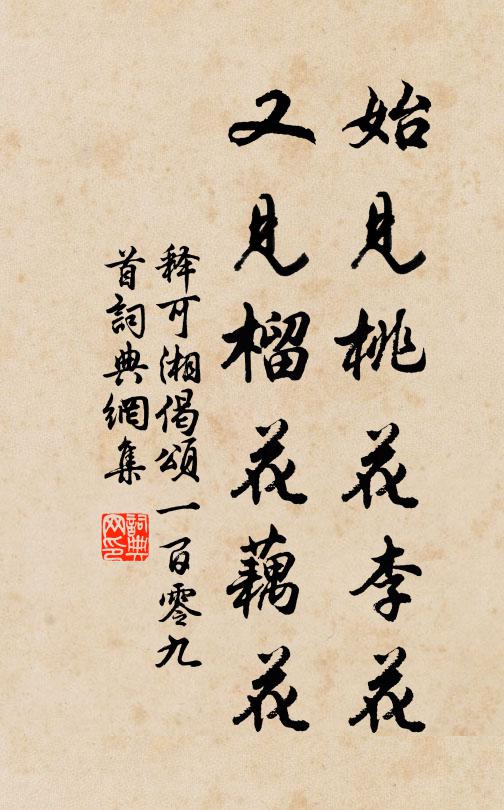 始見桃花李花
又見榴花藕花
释可湘偈頌一百零九
首詞典網集
詞典
网印